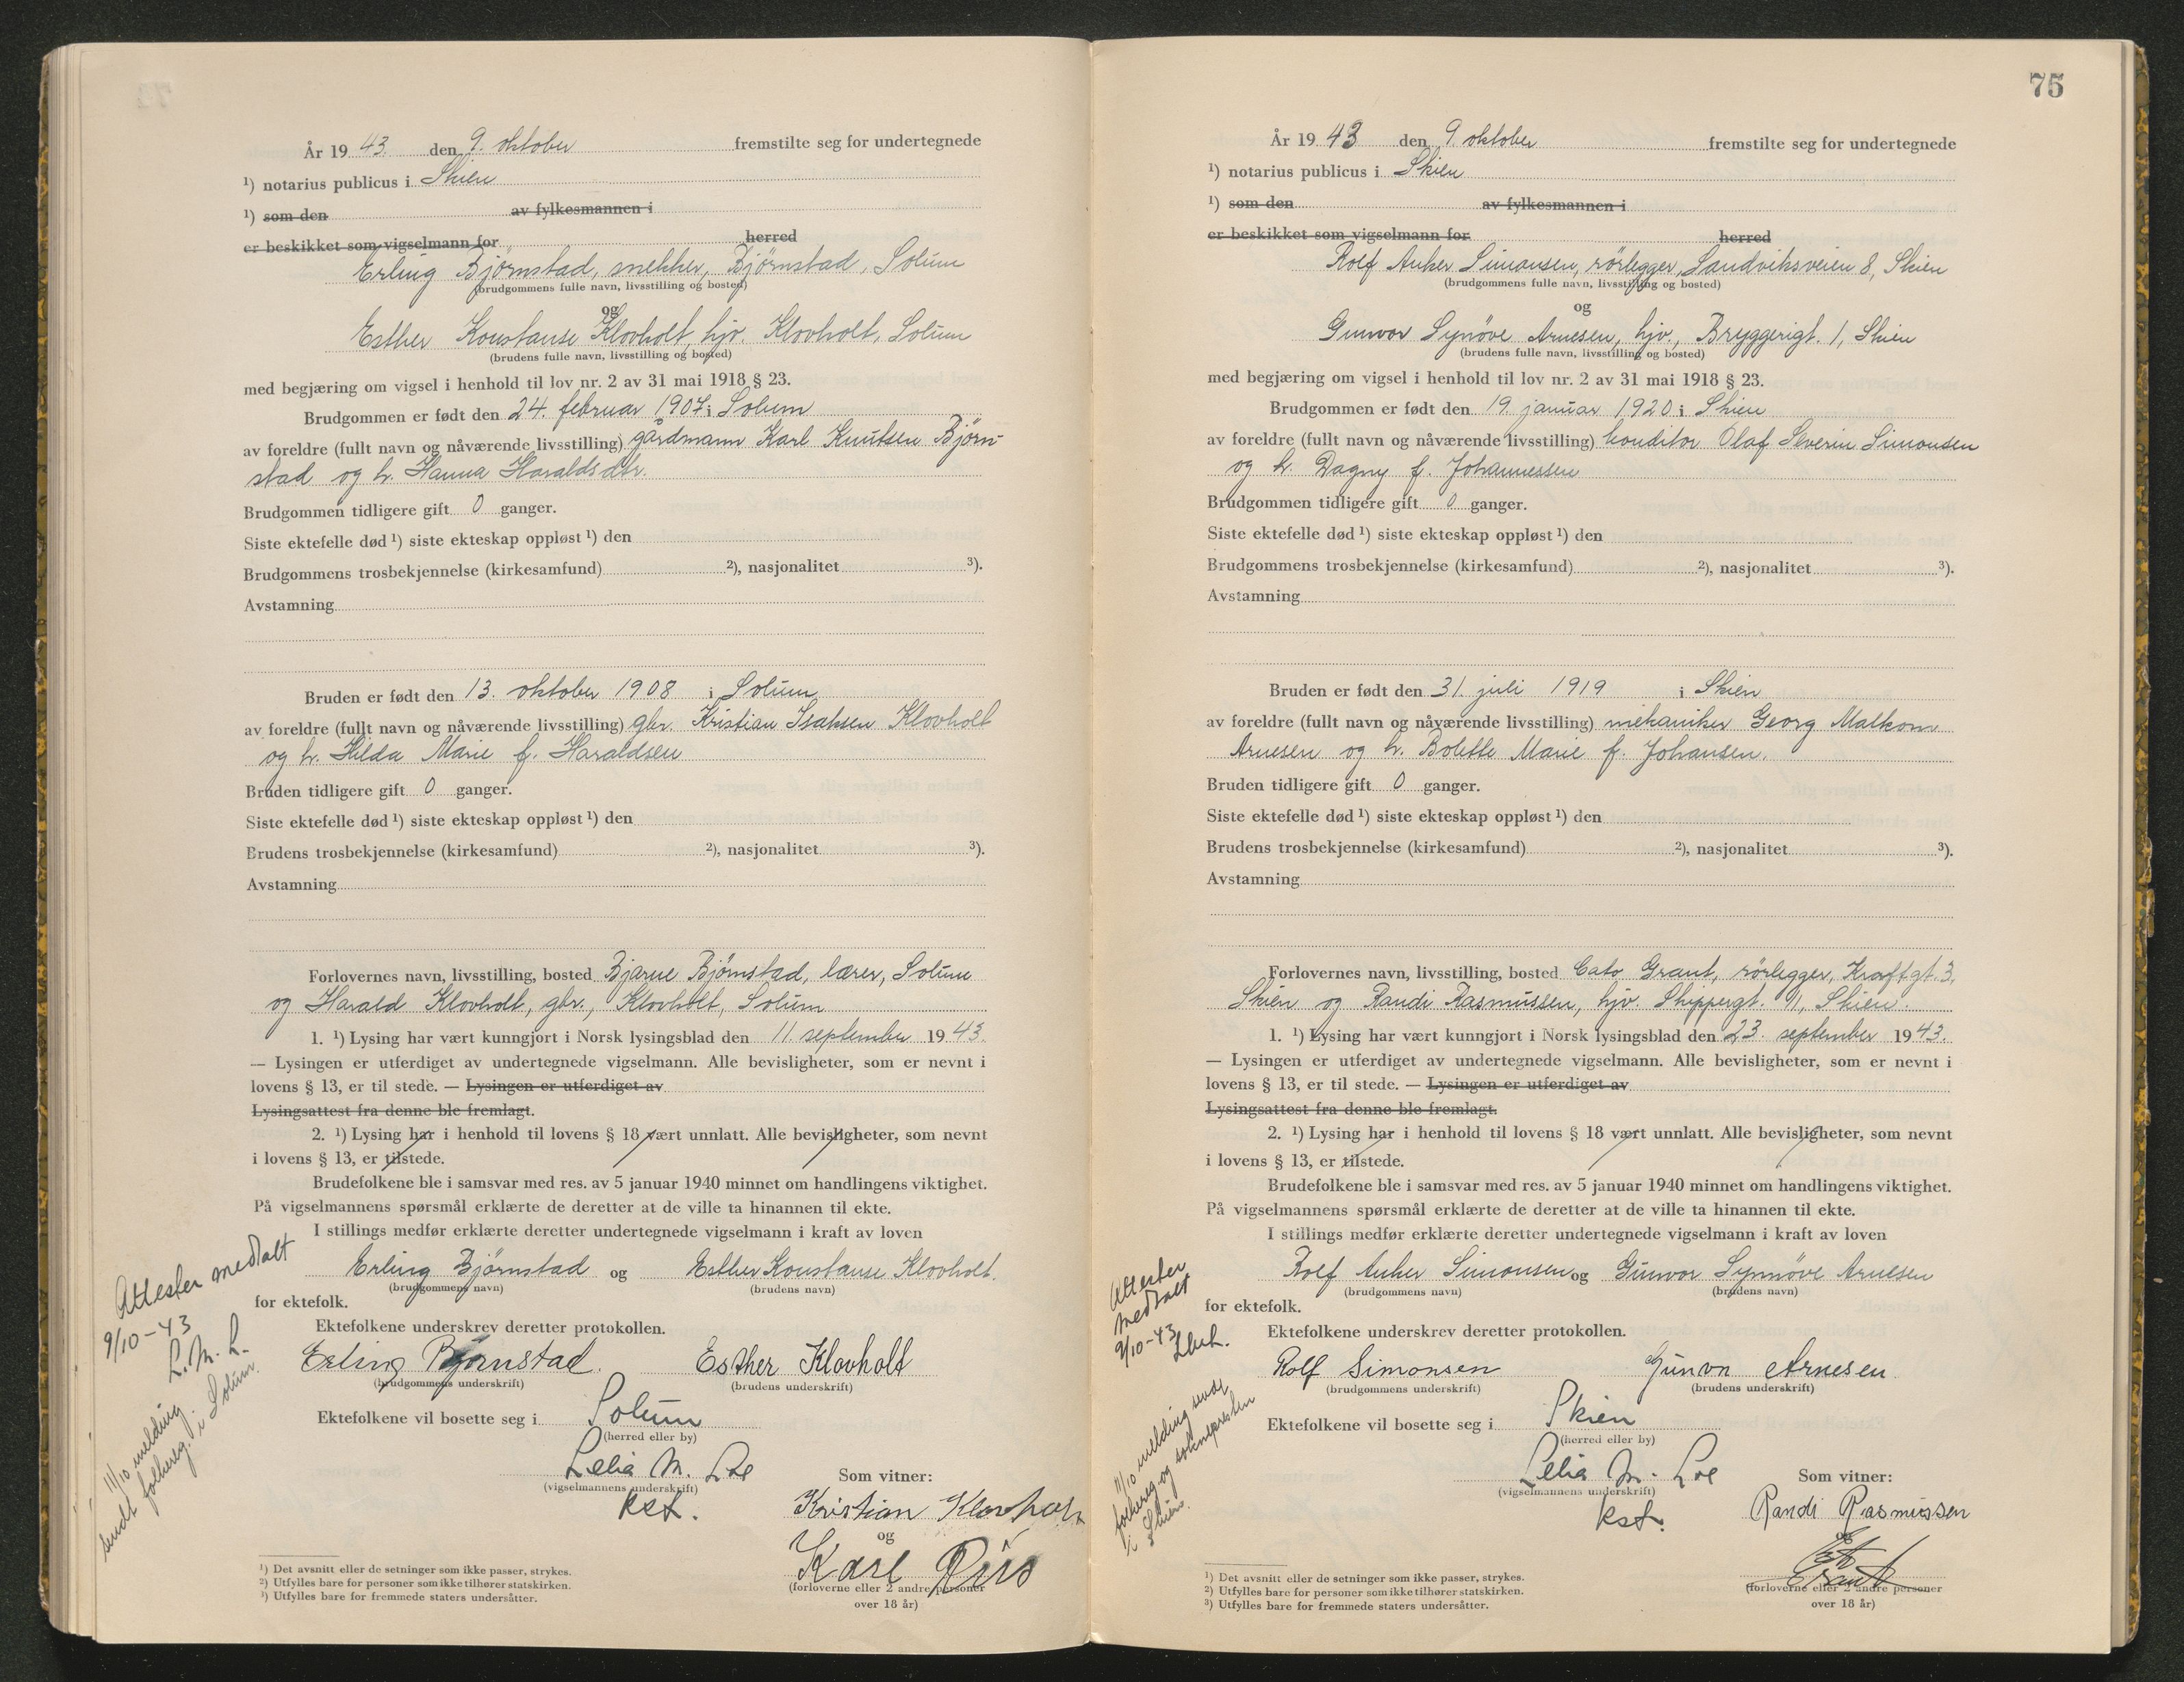 År 19 43. den 9. oktober fremstilte seg for undertegnede
¹) notarius publicus i Skien
¹) som den av fylkesmannen i
er beskikket som vigselmann for herred
Erling Bjørnstad, mekker, Bjørnstad, Solum
(brudgommens fulle navn, livsstilling og bosted)
og
Esther Konstanse Klovholt, hjv. Klovholt, Solum
(brudens fulle navn, livsstilling og bosted)
med begjæring om vigsel i henhold til lov nr. 2 av 31 mai 1918 § 23.
Brudgommen er født den 24. februar 1907 i Solum
av foreldre (fullt navn og nåværende livsstilling) gårdmann Karl Knutsen Bjørn-
stad og h. Hanna Haraldsdtr.
Brudgommen tidligere gift 0 ganger.
Siste ektefelle død ¹) siste ekteskap oppløst ¹) den
Brudgommens trosbekjennelse (kirkesamfund) ²), nasjonalitet ³).
Avstamning
Bruden er født den 13. oktober 1908 i Solum
av foreldre (fullt navn og nåværende livsstilling) gbr. Kristian Isaksen Klovholt
og h. Hilda Marie f. Haraldsen
Bruden tidligere gift 0 ganger.
Siste ektefelle død ¹) siste ekteskap oppløst ¹) den
Brudens trosbekjennelse (kirkesamfund) ²), nasjonalitet ³).
Avstamning
Forlovernes navn, livsstilling, bosted Bjarne Bjørnstad, lærer, Solum
og Harald Klovholt, gbr., Klovholt, Solum
1. ¹) Lysing har vært kunngjort i Norsk lysingsblad den 11. september 19 43.
— Lysingen er utferdiget av undertegnede vigselmann. Alle bevisligheter, som er nevnt i
lovens § 13, er til stede. — Lysingen er utferdiget av
Lysingsattest fra denne ble fremlagt.
2. ¹) Lysing har i henhold til lovens § 18 vært unnlatt. Alle bevisligheter, som nevnt
i lovens § 13, er tilstede.
Brudefolkene ble i samsvar med res. av 5 januar 1940 minnet om handlingens viktighet.
På vigselmannens spørsmål erklærte de deretter at de ville ta hinannen til ekte.
I stillings medfør erklærte deretter undertegnede vigselmann i kraft av loven
Erling Bjørnstad og Esther Konstanse Klovholt.
(brudgommens navn) (brudens navn)
for ektefolk.
Ektefolkene underskrev deretter protokollen.
Erling Bjørnstad. Esther Klovholt
(brudgommens underskrift) (brudens underskrift)
Ektefolkene vil bosette seg i Solum
(herred eller by)
Lelia M. Loe
(vigselmannens underskrift)
kst.
Som vitner:
Kristian Klovholt
og
Karl Riis
(forloverne eller 2 andre personer
over 18 år)
Attester medtalt
9/10-43
L.M.L.
11/10 melding
sendt folkereg. i Solum.
¹) Det avsnitt eller de setninger som ikke passer, strykes.
²) Utfylles bare for personer som ikke tilhører statskirken.
³) Utfylles bare for fremmede staters undersåtter.
75
År 19 43 den 9 oktober fremstilte seg for undertegnede
¹) notarius publicus i Skien
¹) som den av fylkesmannen i
er beskikket som vigselmann for herred
Rolf Anker Simonsen, rørlegger, Landviksveien 8, Skien
(brudgommens fulle navn, livsstilling og bosted)
og
Gunvor Synöve Arnesen, hjv., Bryggerigt. 1, Skien
(brudens fulle navn, livsstilling og bosted)
med begjæring om vigsel i henhold til lov nr. 2 av 31 mai 1918 § 23.
Brudgommen er født den 19. januar 1920 i Skien
av foreldre (fullt navn og nåværende livsstilling) konditor Olaf Severin Simonsen
og h. Dagny f. Johannessen
Brudgommen tidligere gift 0 ganger.
Siste ektefelle død ¹) siste ekteskap oppløst ¹) den
Brudgommens trosbekjennelse (kirkesamfund) ²), nasjonalitet ³).
Avstamning
Bruden er født den 31. juli 1919 i Skien
av foreldre (fullt navn og nåværende livsstilling) mekaniker Georg Malkom
Arnesen og h. Bolette Marie f. Johansen.
Bruden tidligere gift 0 ganger.
Siste ektefelle død ¹) siste ekteskap oppløst ¹) den
Brudens trosbekjennelse (kirkesamfund) ²), nasjonalitet ³).
Avstamning
Forlovernes navn, livsstilling, bosted Cato Grant, rørlegger, Kraftgt. 3,
Skien og Randi Rasmussen, hjv. Skippergt. 11, Skien.
1. ¹) Lysing har vært kunngjort i Norsk lysingsblad den 23. september 19 43.
— Lysingen er utferdiget av undertegnede vigselmann. Alle bevisligheter, som er nevnt i
lovens § 13, er til stede. — Lysingen er utferdiget av
Lysingsattest fra denne ble fremlagt.
2. ¹) Lysing har i henhold til lovens § 18 vært unnlatt. Alle bevisligheter, som nevnt
i lovens § 13, er tilstede.
Brudefolkene ble i samsvar med res. av 5 januar 1940 minnet om handlingens viktighet.
På vigselmannens spørsmål erklærte de deretter at de ville ta hinannen til ekte.
I stillings medfør erklærte deretter undertegnede vigselmann i kraft av loven
Rolf Anker Simonsen og Gunvor Synnöve Arnesen
(brudgommens navn) (brudens navn)
for ektefolk.
Ektefolkene underskrev deretter protokollen.
Rolf Simonsen Gunvor Arnesen
(brudgommens underskrift) (brudens underskrift)
Ektefolkene vil bosette seg i Skien
(herred eller by)
Lelia M. Loe
(vigselmannens underskrift)
kst.
Som vitner:
Randi Rasmussen
og
Grant
(forloverne eller 2 andre personer
over 18 år)
Attester
medtalt
9/10-43
11/10 melding sendt
folkereg. og soknepresten
i Skien.
¹) Det avsnitt eller de setninger som ikke passer, strykes.
²) Utfylles bare for personer som ikke tilhører statskirken.
³) Utfylles bare for fremmede staters undersåtter.